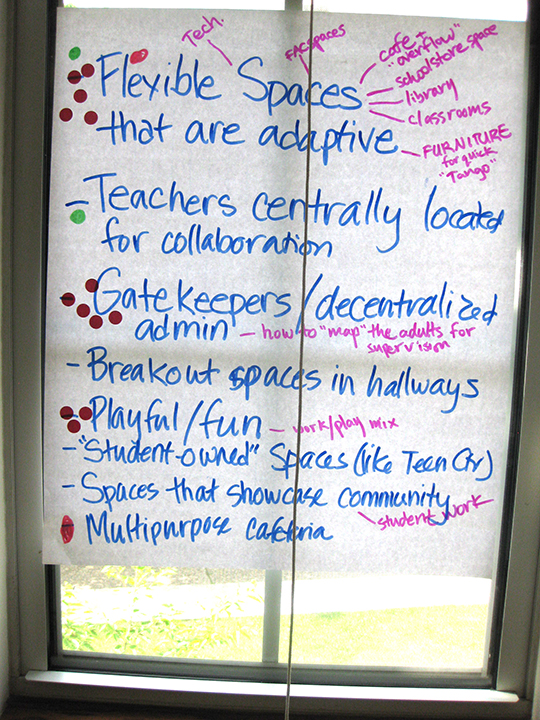 Tech.
FAC spaces
cafe +
"overflow"
school store space
library
classrooms
- Flexible Spaces
that are adaptive
- FURNITURE
for quick
"Tango"
- Teachers centrally located
for collaboration
- Gatekeepers/decentralized
admin - how to "map" the adults for
supervision
- Breakout spaces in hallways
- Playful/fun - work/play mix
- "Student-owned" Spaces (like Teen Ctr)
- Spaces that showcase community
student work
- Multipurpose cafeteria